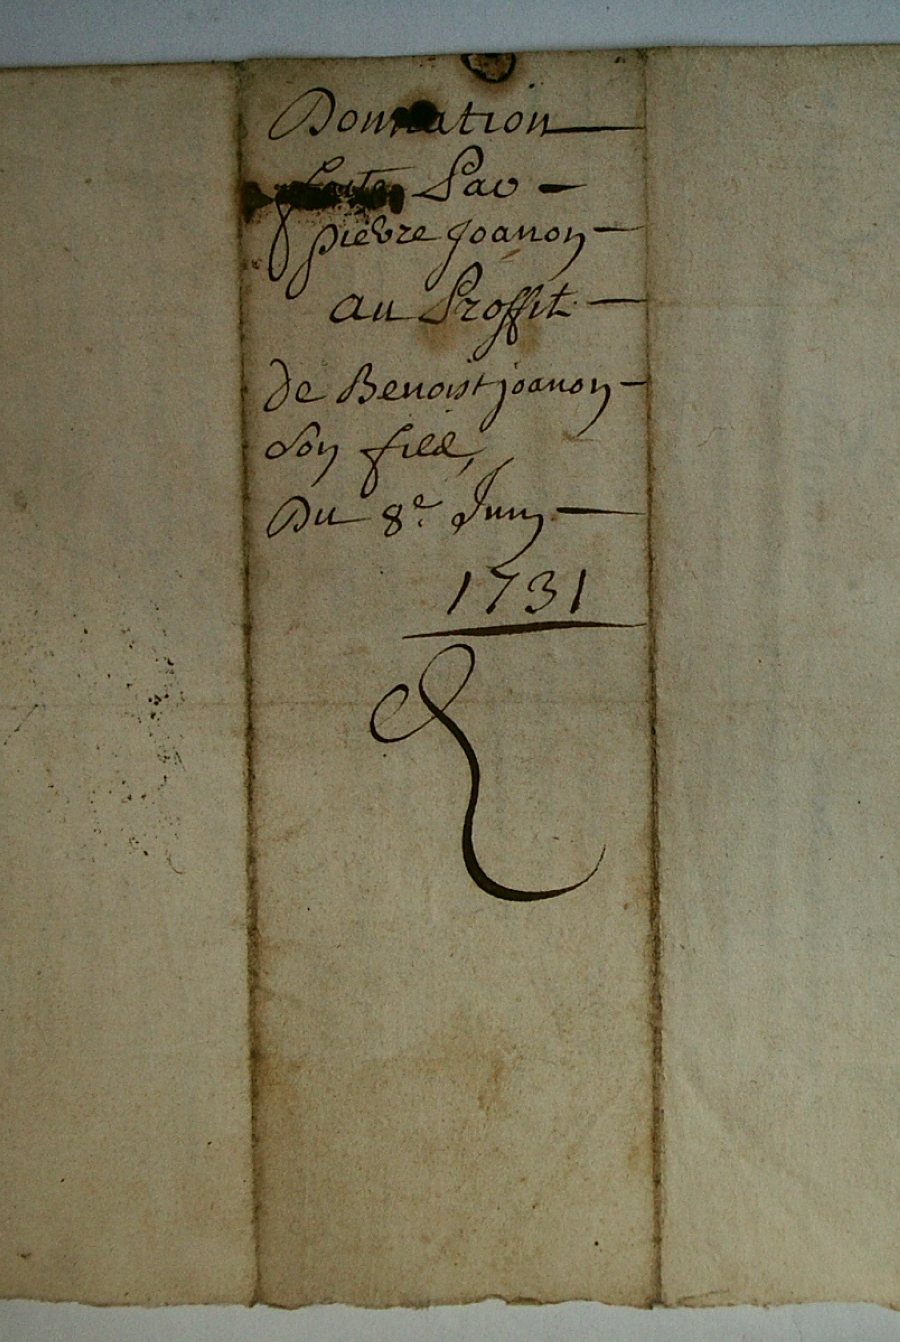 Donnation
faite Par
pierre Joanon
au Proffit
de Benoist joanon
son fils,
Du 8e. Juin
1731